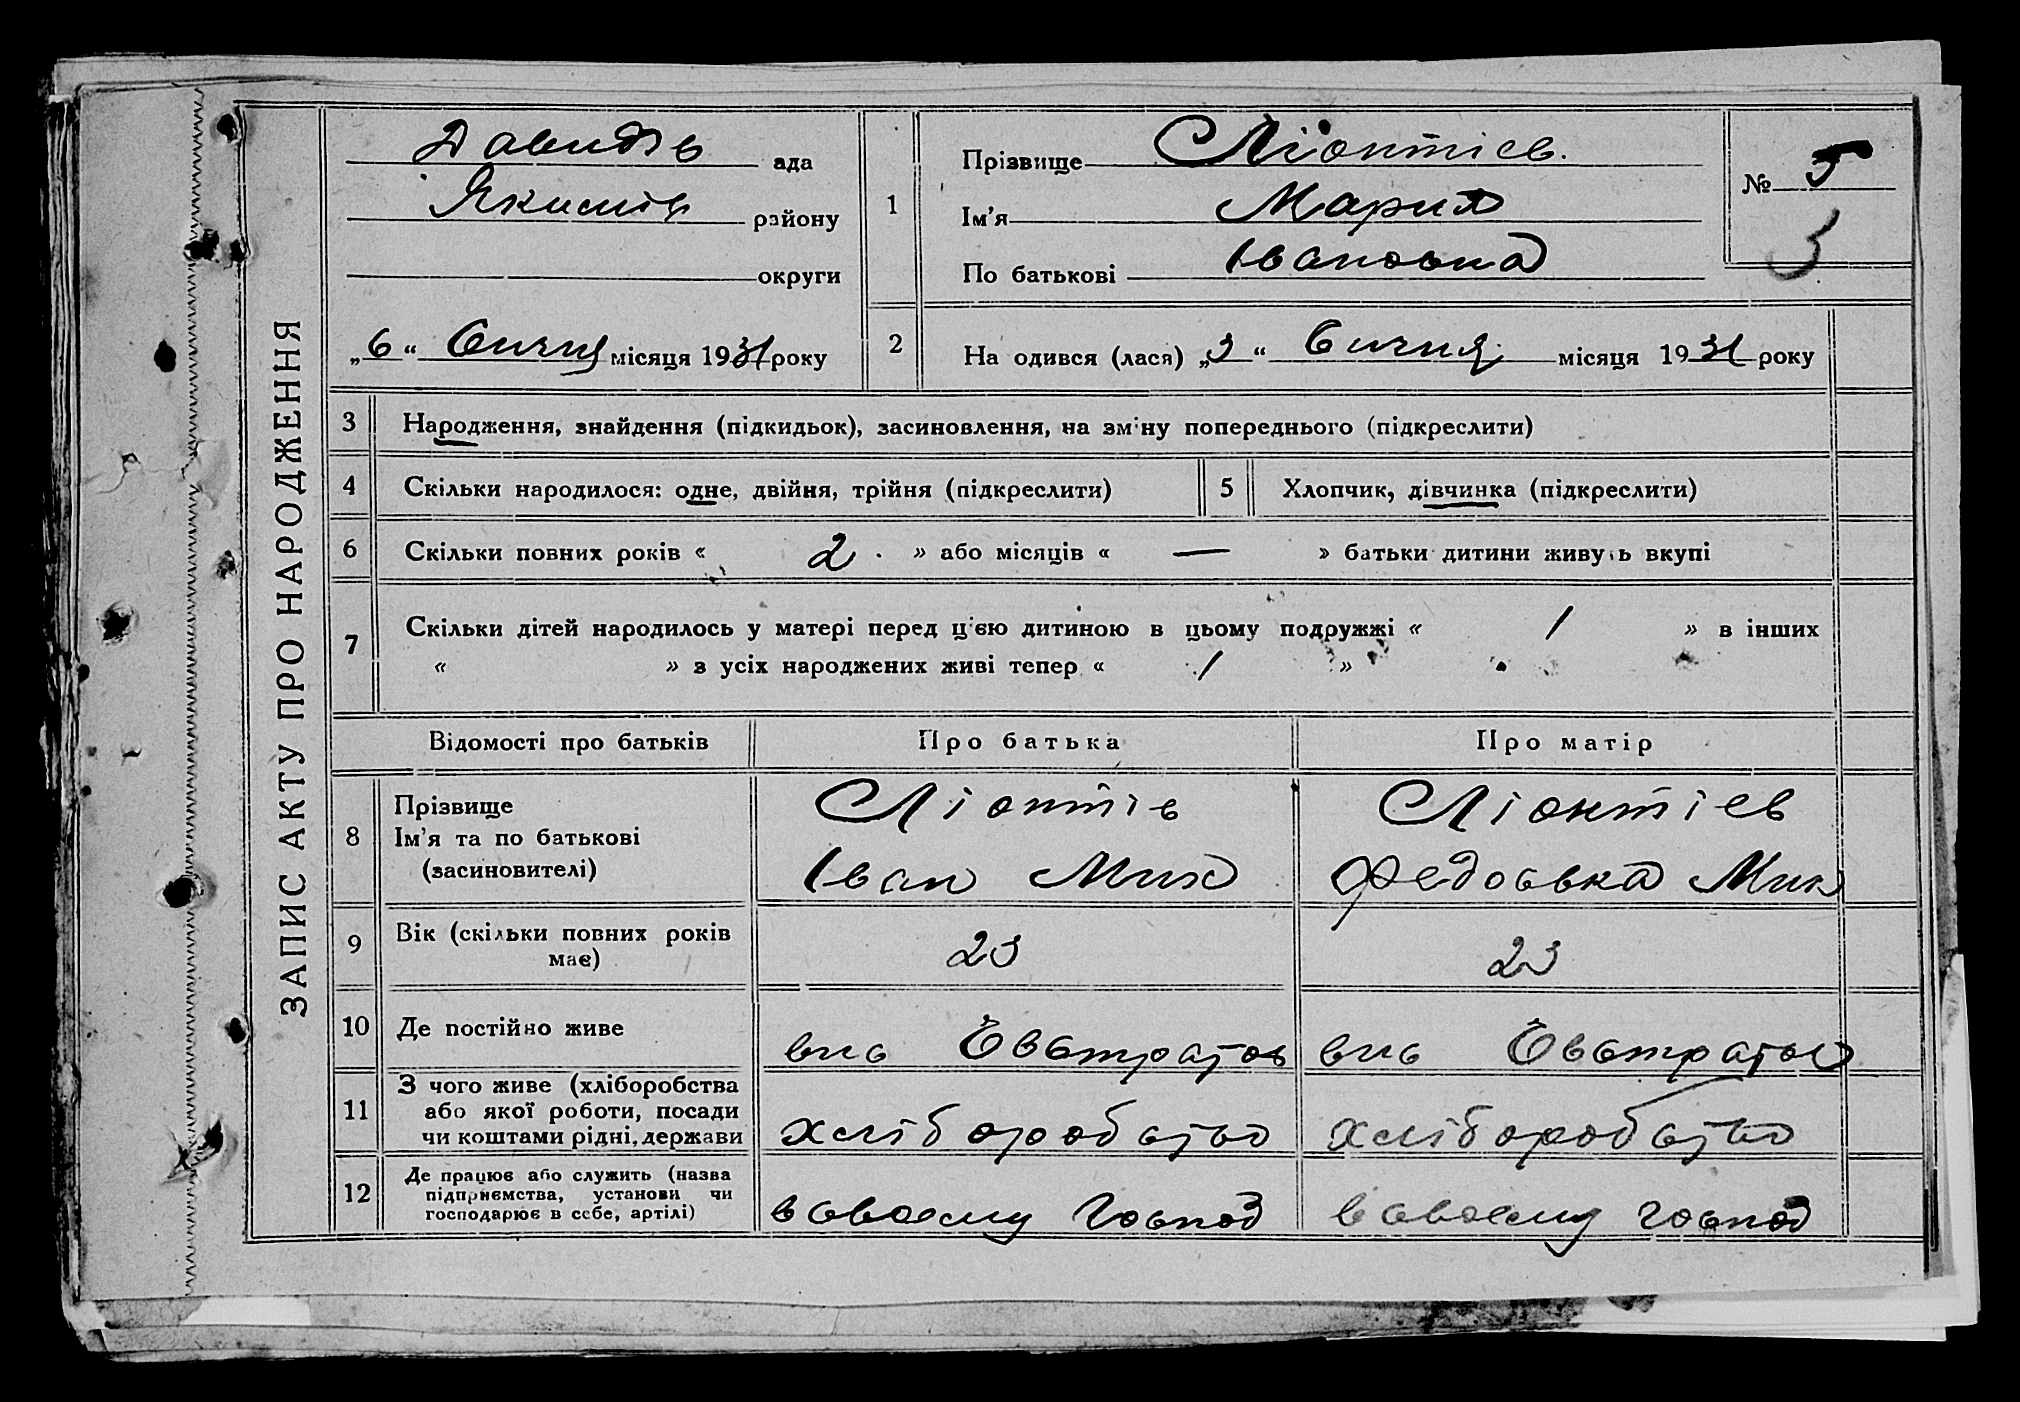 ЗАПИС АКТУ ПРО НАРОДЖЕННЯ
Давидів ада
Якимів району
округи
„6“ Січня місяця 1931 року
1
Прізвище Ліонтієв.
Ім’я Мария
По батькові Івановна
№ 5
3
2
На одився (лася) „3“ Січня місяця 1931 року
3 Народження, знайдення (підкидьок), засиновлення, на зміну попереднього (підкреслити)
4 Скільки народилося: одне, двійня, трійня (підкреслити)
5 Хлопчик, дівчинка (підкреслити)
6 Скільки повних років « 2 . » або місяців « — » батьки дитини живуть вкупі
7 Скільки дітей народилось у матері перед ц’єю дитиною в цьому подружжі « 1 » в інших
« » з усіх народжених живі тепер « 1 »
Відомості про батьків Про батька Про матір
8 Прізвище
Ім’я та по батькові
(засиновителі)
Ліонтів
Іван Мих
Ліонтієв
Федоська Мих
9 Вік (скільки повних років
має)
23
23
10 Де постійно живе
Євстратов
Євстратов
11 З чого живе (хліборобства
або якої роботи, посади
чи коштами рідні, держави
хліборобство
хліборобство
12 Де працює або служить (назва
підприємства, установи чи
господарює в себе, артілі)
в своєму господ
в своєму господ